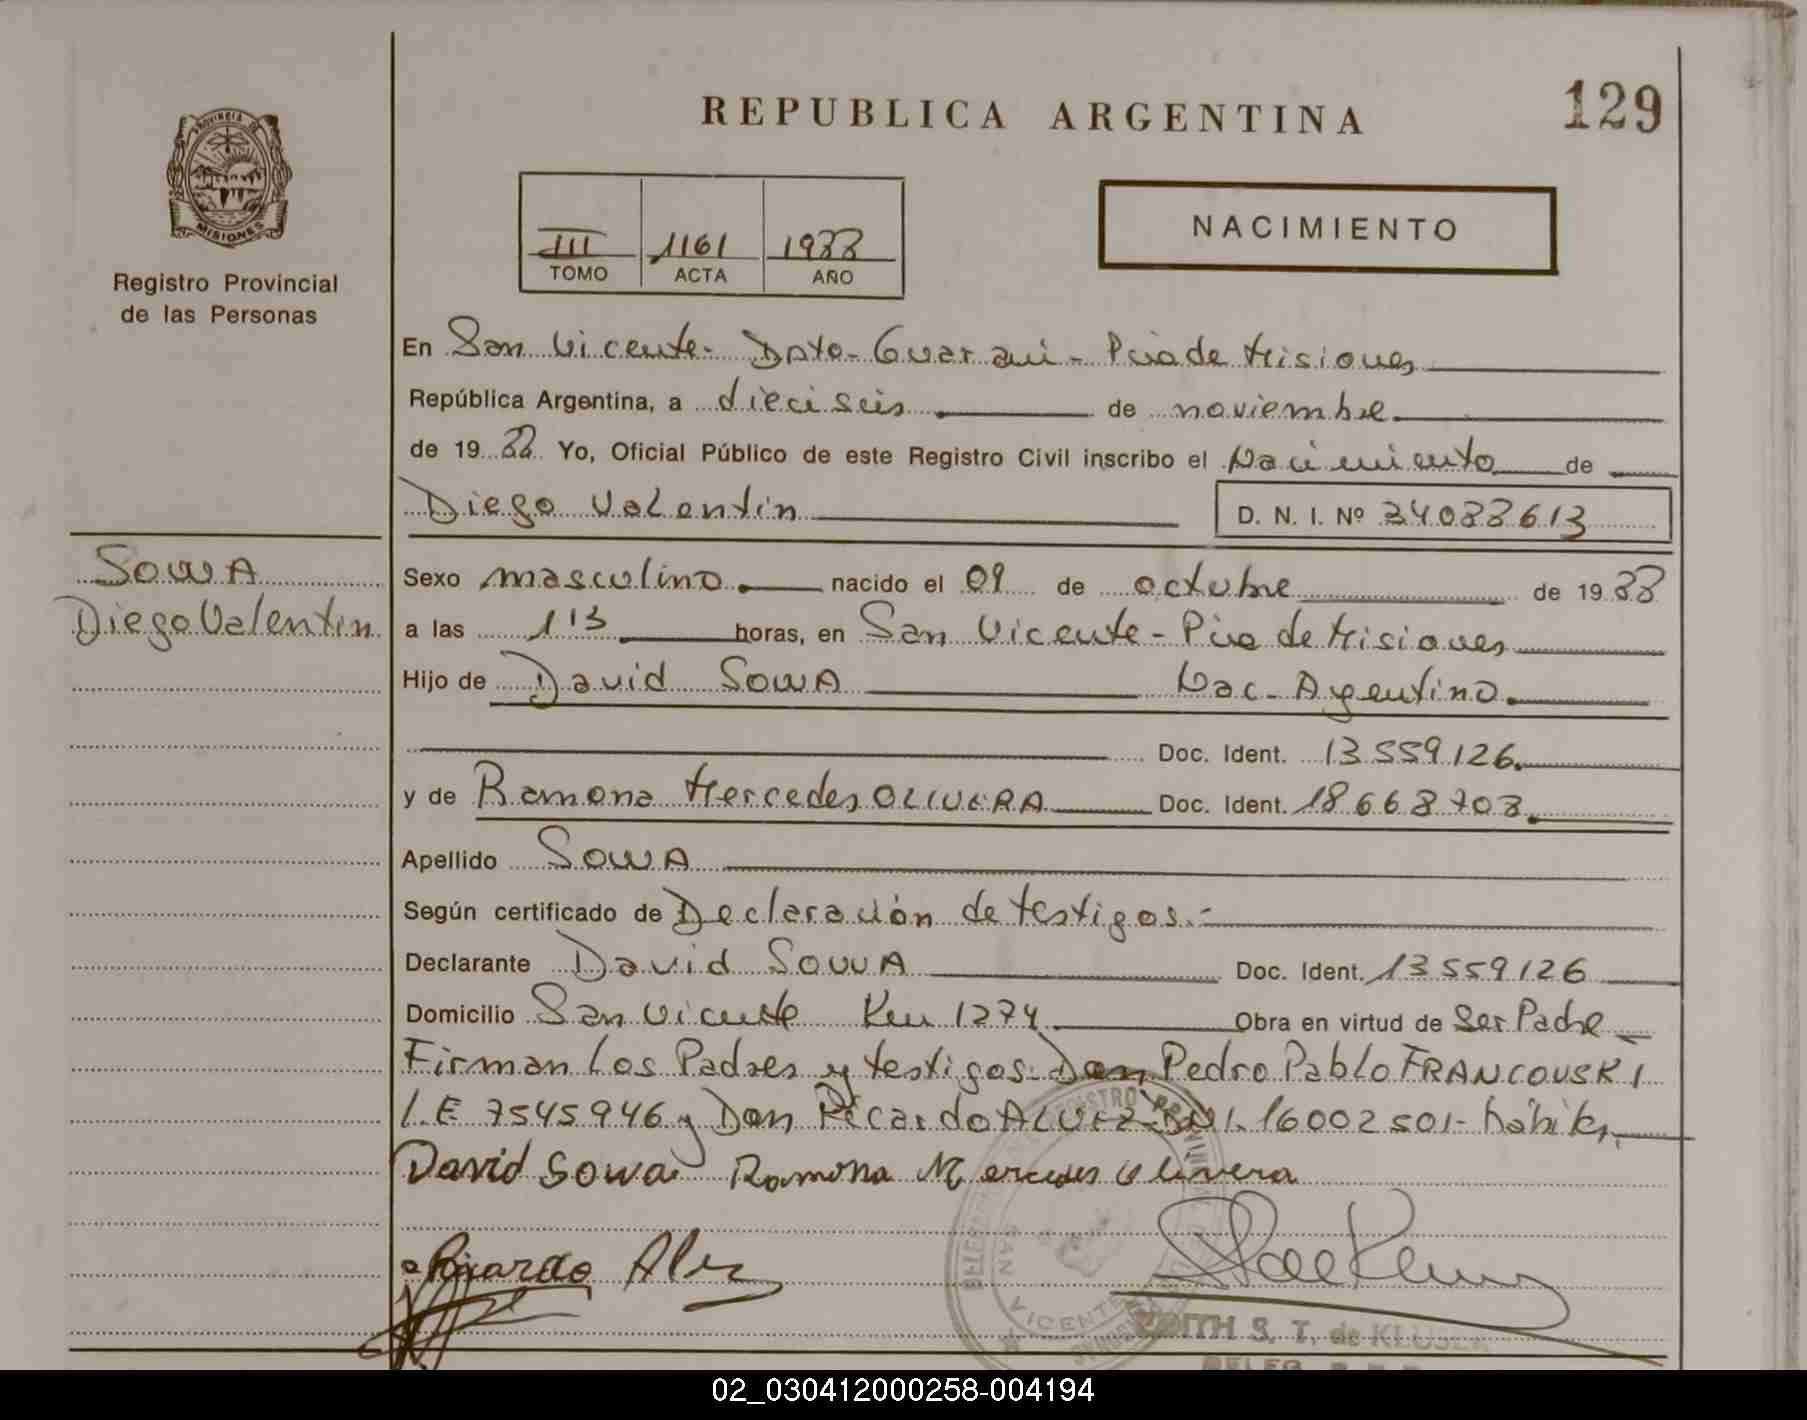 REPUBLICA ARGENTINA
129
PROVINCIA DE
MISIONES
Registro Provincial
de las Personas
III 1161 1988
TOMO ACTA AÑO
NACIMIENTO
En San Vicente- Dpto- Guarani- Pcia de Misiones
República Argentina, a dieciseis de noviembre
de 19 88 Yo, Oficial Público de este Registro Civil inscribo el Nacimiento de
Diego Valentin D. N. I. Nº 34088613
SOWA
Diego Valentin
Sexo masculino nacido el 09 de octubre de 19 88
a las 1'13 horas, en San Vicente- Pcia de Misiones
Hijo de David SOWA Nac- Argentino
Doc. Ident. 13.559.126
y de Ramona Mercedes OLIVERA Doc. Ident. 18.668.708
Apellido SOWA
Según certificado de Declaración de testigos.-
Declarante David SOWA Doc. Ident. 13559126
Domicilio San Vicente Km 1274 Obra en virtud de Ser Padre
Firman Los Padres y testigos- Don Pedro Pablo FRANCOUSKI
L.E 7545946 y Don Ricardo ALVEZ- DNI. 16002501- hábiles
David Sowa Ramona Mercedes Olivera
Ricardo Alez
SAN VICENTE
MISIONES
EDITH S. T. de KLUSEK
02_030412000258-004194